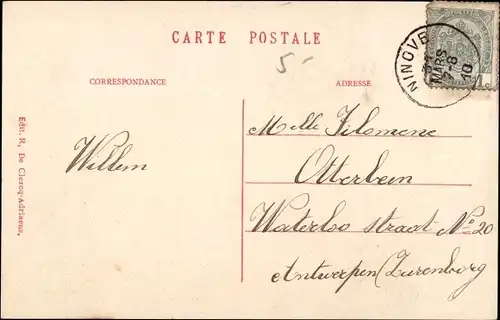 CARTE POSTALE
5-
NINOVE
31
MARS
7-8
10
1c
CORRESPONDANCE
ADRESSE
Melle Filomene
Otterbein
Willem
Waterloo straat No 20
Antwerpen (Zurenborg
Edit. R. De Clercq-Adriaens,